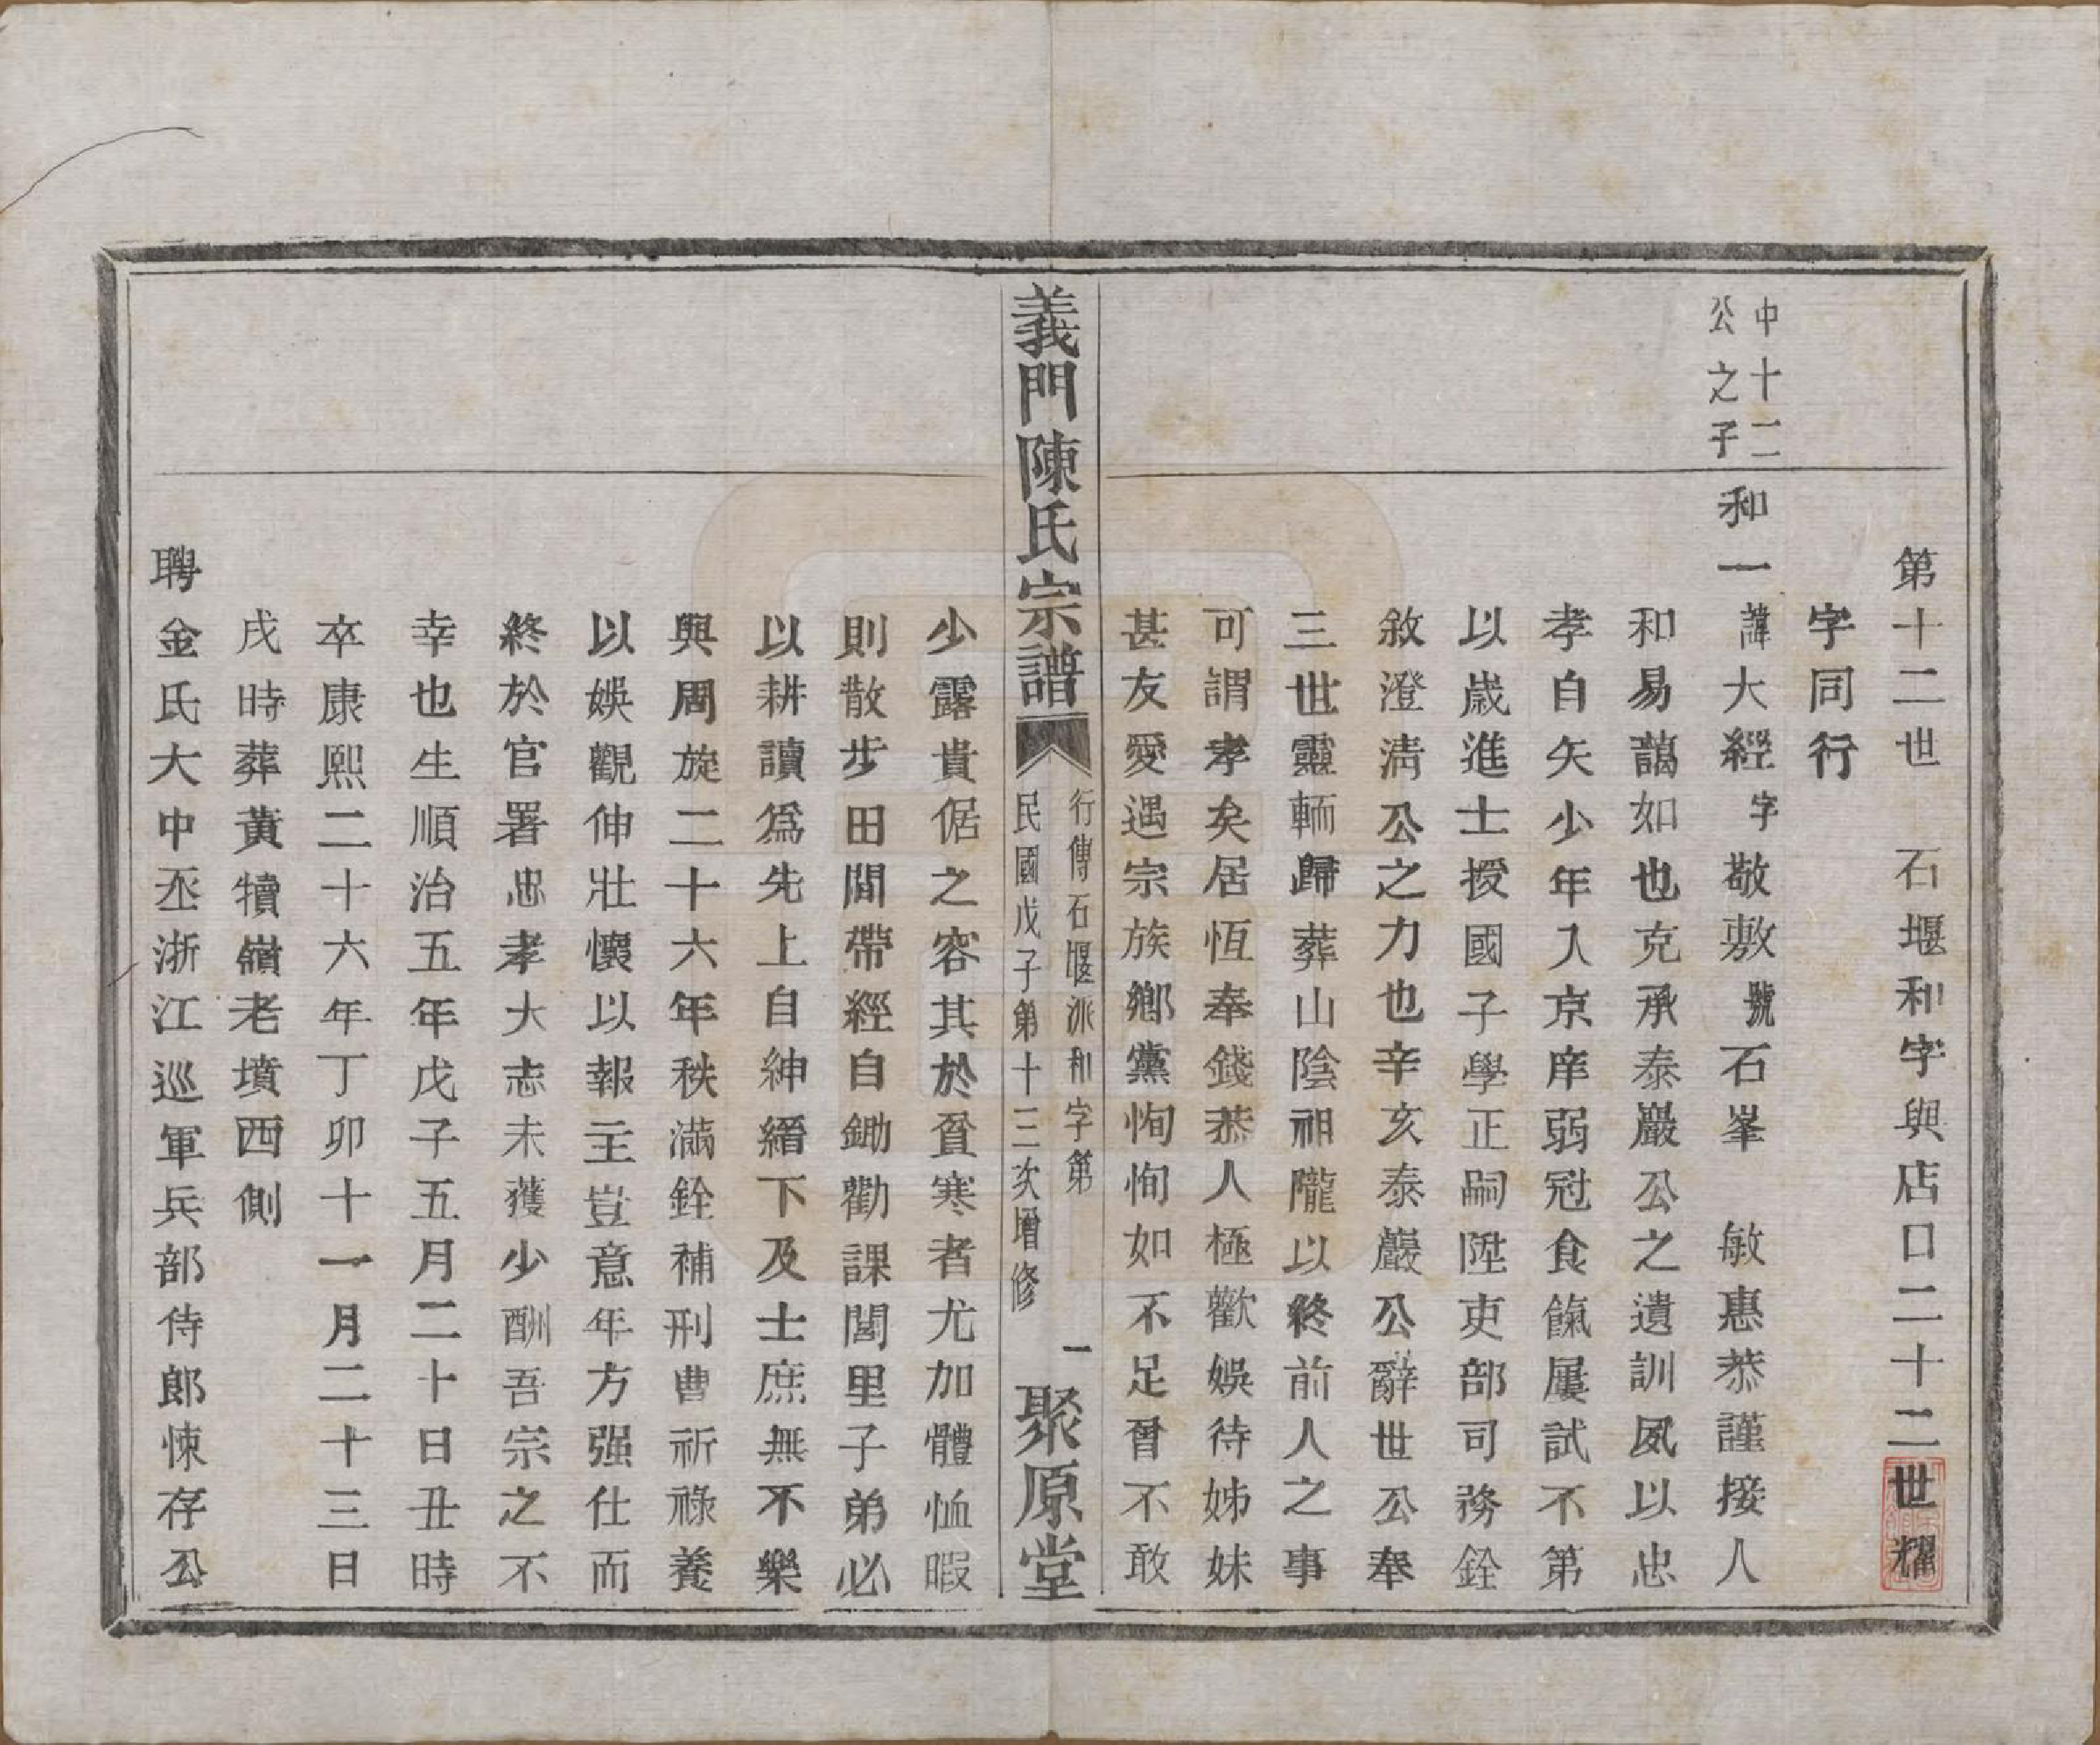 第十二世　石堰和字與店口二十二世耀
字同行
中十二
公之子
和一諱大經字敬敷號石峯　敏惠恭謹接人
和易藹如也克承泰巖公之遺訓夙以忠
孝自矢少年入京庠弱冠食餼屢試不第
以歲進士授國子學正嗣陞吏部司務銓
敘澄淸公之力也辛亥泰巖公辭世公奉
三世靈輀歸葬山陰祖隴以終前人之事
可謂孝矣居恆奉錢恭人極歡娛待姊妹
甚友愛遇宗族鄕黨恂恂如不足曾不敢
義門陳氏宗譜
行傳石堰派和字第　一
民國戊子第十三次增修
聚原堂
少露貴倨之容其於貧寒者尤加體恤暇
則散步田間帶經自鋤勸課閭里子弟必
以耕讀爲先上自紳縉下及士庶無不樂
與周旋二十六年秩滿銓補刑曹祈祿養
以娛觀伸壯懷以報主豈意年方强仕而
終於官署忠孝大志未獲少酬吾宗之不
幸也生順治五年戊子五月二十日丑時
卒康熙二十六年丁卯十一月二十三日
戌時葬黃犢嶺老墳西側
聘金氏大中丞浙江巡軍兵部侍郎悚存公